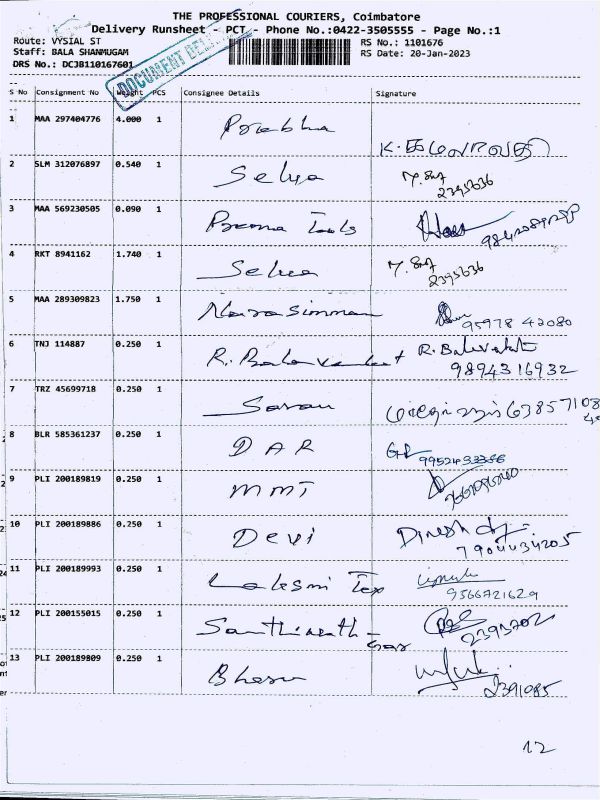 THE PROFESSIONAL COURIERS, Coimbatore
Delivery Runsheet - PCT - Phone No.:0422-3505555 - Page No.:1
Route: VYSIAL ST
RS No.: 1101676
Staff: BALA SHANMUGAM
RS Date: 20-Jan-2023
DRS No.: DCJB110167601
DOCUMENT
S No Consignment No Weight PCS Consignee Details Signature
1 MAA 297404776 4.000 1 Prabha
2 SLM 312076897 0.540 1 Selva
2395636
3 MAA 569230505 0.090 1 Prema Tools
4 RKT 8941162 1.740 1 Selva
2395636
5 MAA 289309823 1.750 1 Narasimman
95978 42080
6 TNJ 114887 0.250 1 R. Balavenkat R. Balavenkat
9894316932
7 TRZ 45699718 0.250 1 Saran
8 BLR 585361237 0.250 1 DAR
9 PLI 200189819 0.250 1 MMT
10 PLI 200189886 0.250 1 Devi Dinesh
7904434205
11 PLI 200189993 0.250 1 Laksmi Tex
9566721629
12 PLI 200155015 0.250 1
2393202
13 PLI 200189809 0.250 1
2391085
12